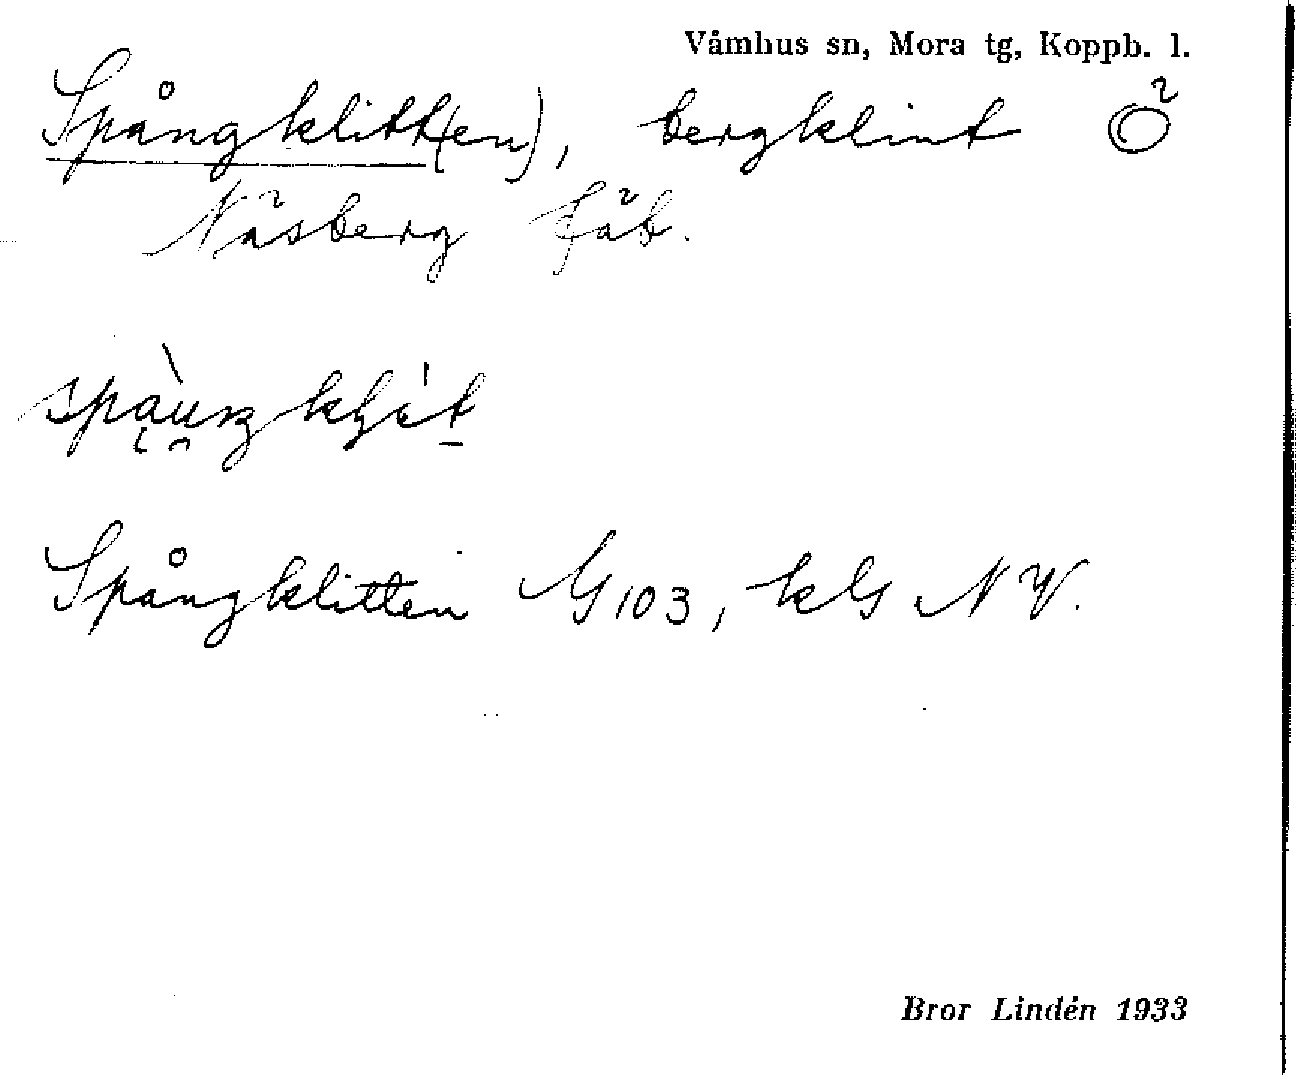 Våmhus sn, Mora tg, Koppb. l.
Spångklitt(en), bergklint Ö
Näsberg fäb.
Spångklitten G 103, kls NV.
Bror Lindén 1933